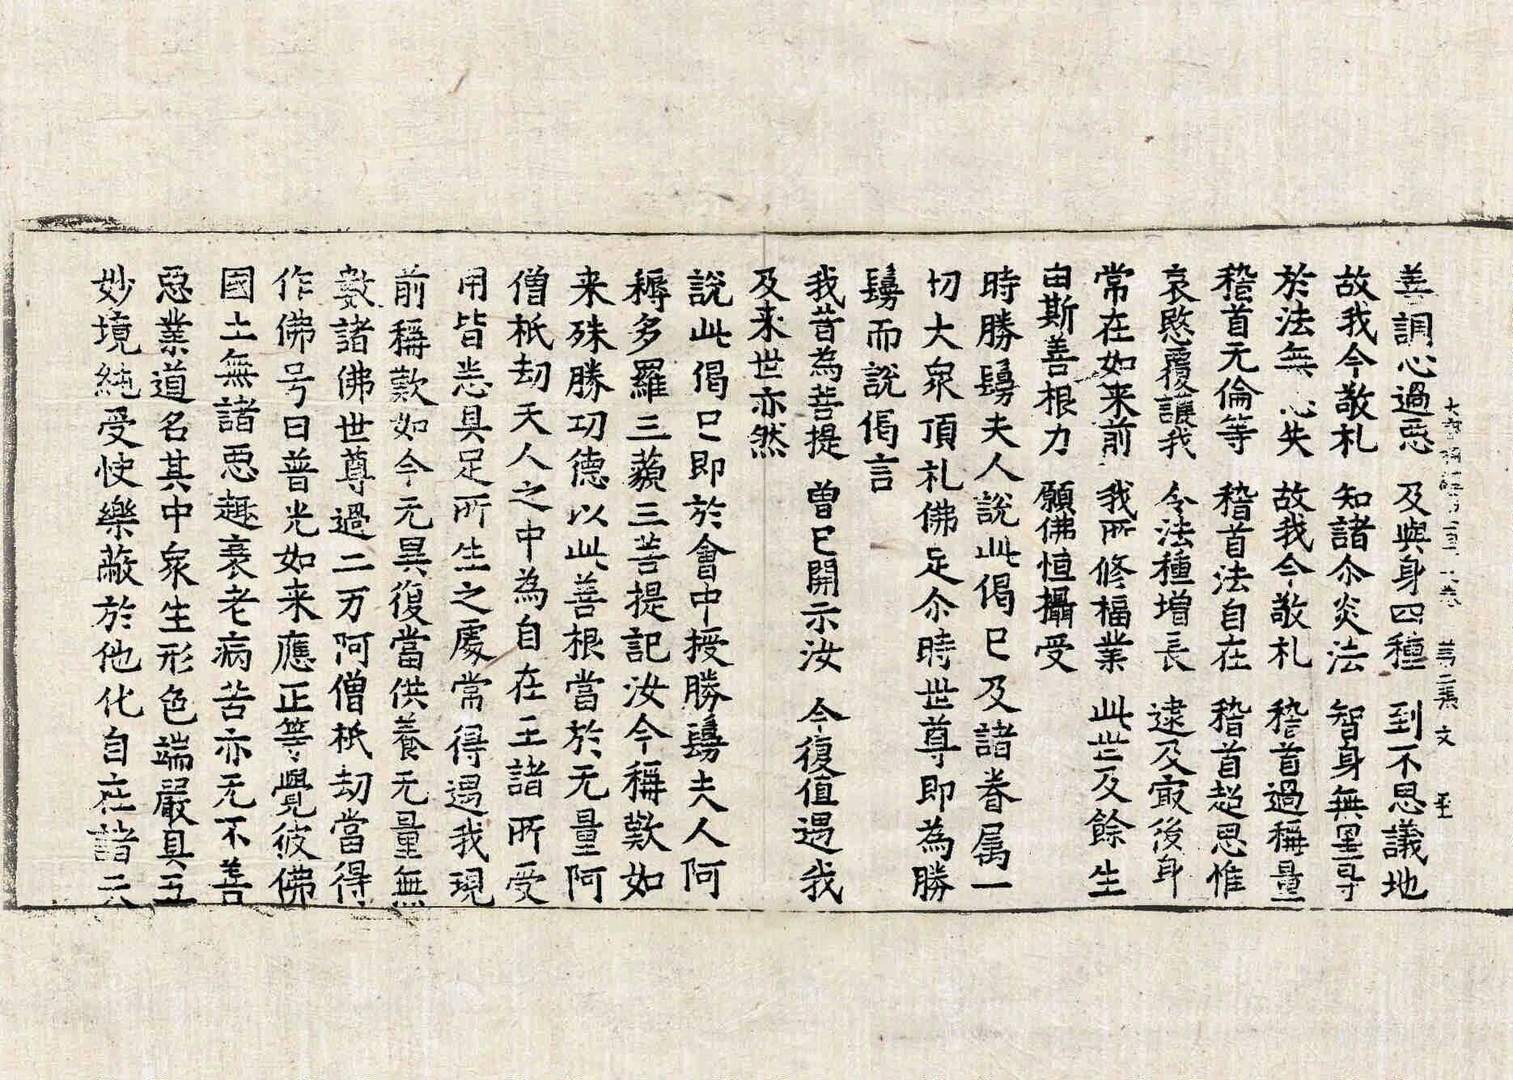 善調心過惡　及與身四種　到不思議地
故我今敬礼　知諸尒炎法　智身無罣㝵
於法無忘失　故我今敬礼　稽首過稱量
稽首无倫等　稽首法自在　稽首超思惟
哀愍覆護我　令法種增長　逮及㝡後身
常在如来前　我所修福業　此世及餘生
由斯善根力　願佛恒攝受
時勝鬘夫人說此偈巳及諸眷属一
切大衆頂礼佛足尒時世尊即為勝
鬘而說偈言
我昔為菩提　曾巳開示汝　今復值遇我
及来世亦然
說此偈巳即於會中授勝鬘夫人阿
耨多羅三藐三菩提記汝今稱歎如
来殊勝功德以此善根當於无量阿
僧祇劫天人之中為自在王諸所受
用皆悉具足所生之處常得遇我現
前稱歎如今无異復當供養无量無
數諸佛世尊過二万阿僧祇劫當得
作佛号曰普光如来應正等覺彼佛
國土無諸惡趣衰老病苦亦无不善
惡業道名其中衆生形色端嚴具五
妙境純受快樂蔽於他化自在諸天